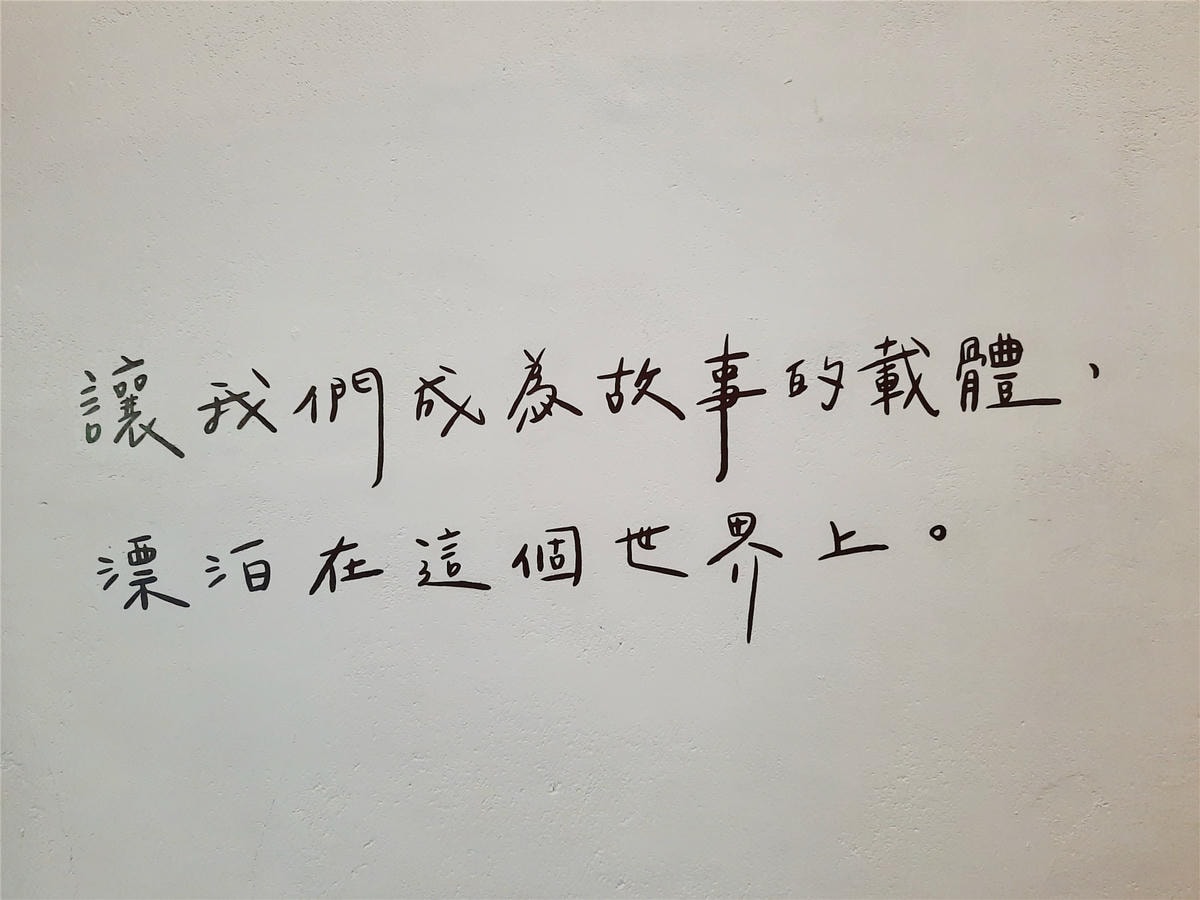 讓我們成為故事的載體，
漂泊在這個世界上。